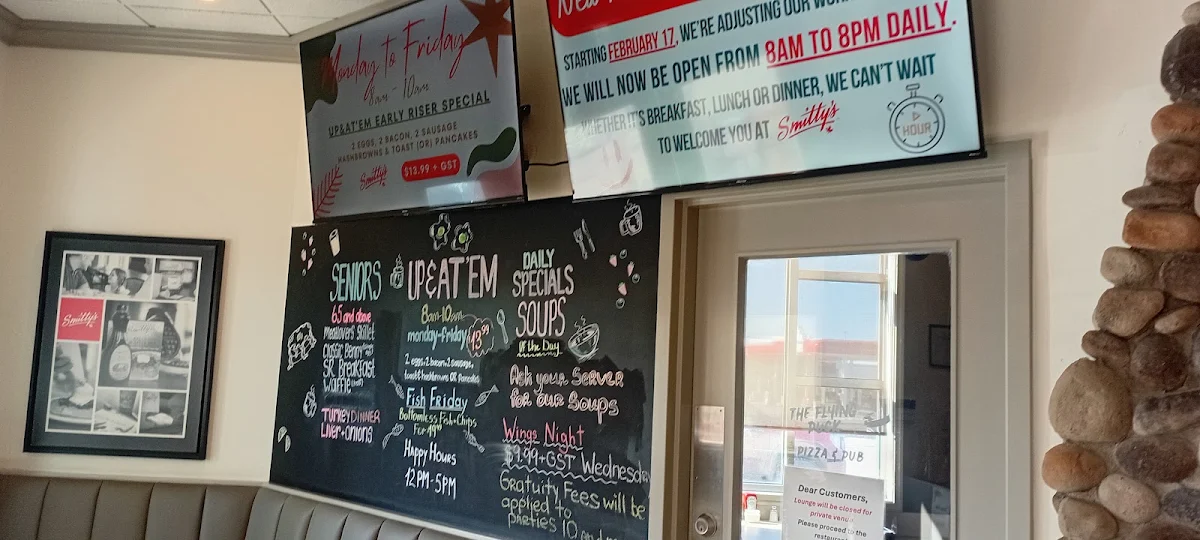 Monday to Friday
8am - 10am
UP&AT'EM EARLY RISER SPECIAL
2 EGGS, 2 BACON, 2 SAUSAGE
HASHBROWNS & TOAST (OR) PANCAKES
Smitty's
$13.99 + GST
STARTING FEBRUARY 17, WE'RE ADJUSTING OUR
WE WILL NOW BE OPEN FROM 8AM TO 8PM DAILY.
WHETHER IT'S BREAKFAST, LUNCH OR DINNER, WE CAN'T WAIT
TO WELCOME YOU AT Smitty's
HOUR
Smitty's
SENIORS
65 and above
Meatlovers Skillet
Classic Benny
SR. Breakfast
Waffle
Turkey DINNER
Liver + Onions
UP&AT'EM
8am-10am
monday-friday
13.99
2 eggs, 2 bacon, 2 sausage,
toast & hashbrowns OR pancakes
Fish Friday
Bottomless Fish + Chips
Happy Hours
12PM-5PM
DAILY
SPECIALS
SOUPS
of the Day
Ask your Server
for our Soups
Wings Night
$9.99+GST Wednesday
Gratuity Fees will be
applied to
parties 10 and
THE FLYING
DUCK
PIZZA & PUB
Dear Customers,
Lounge will be closed for
private venue
Please proceed to the